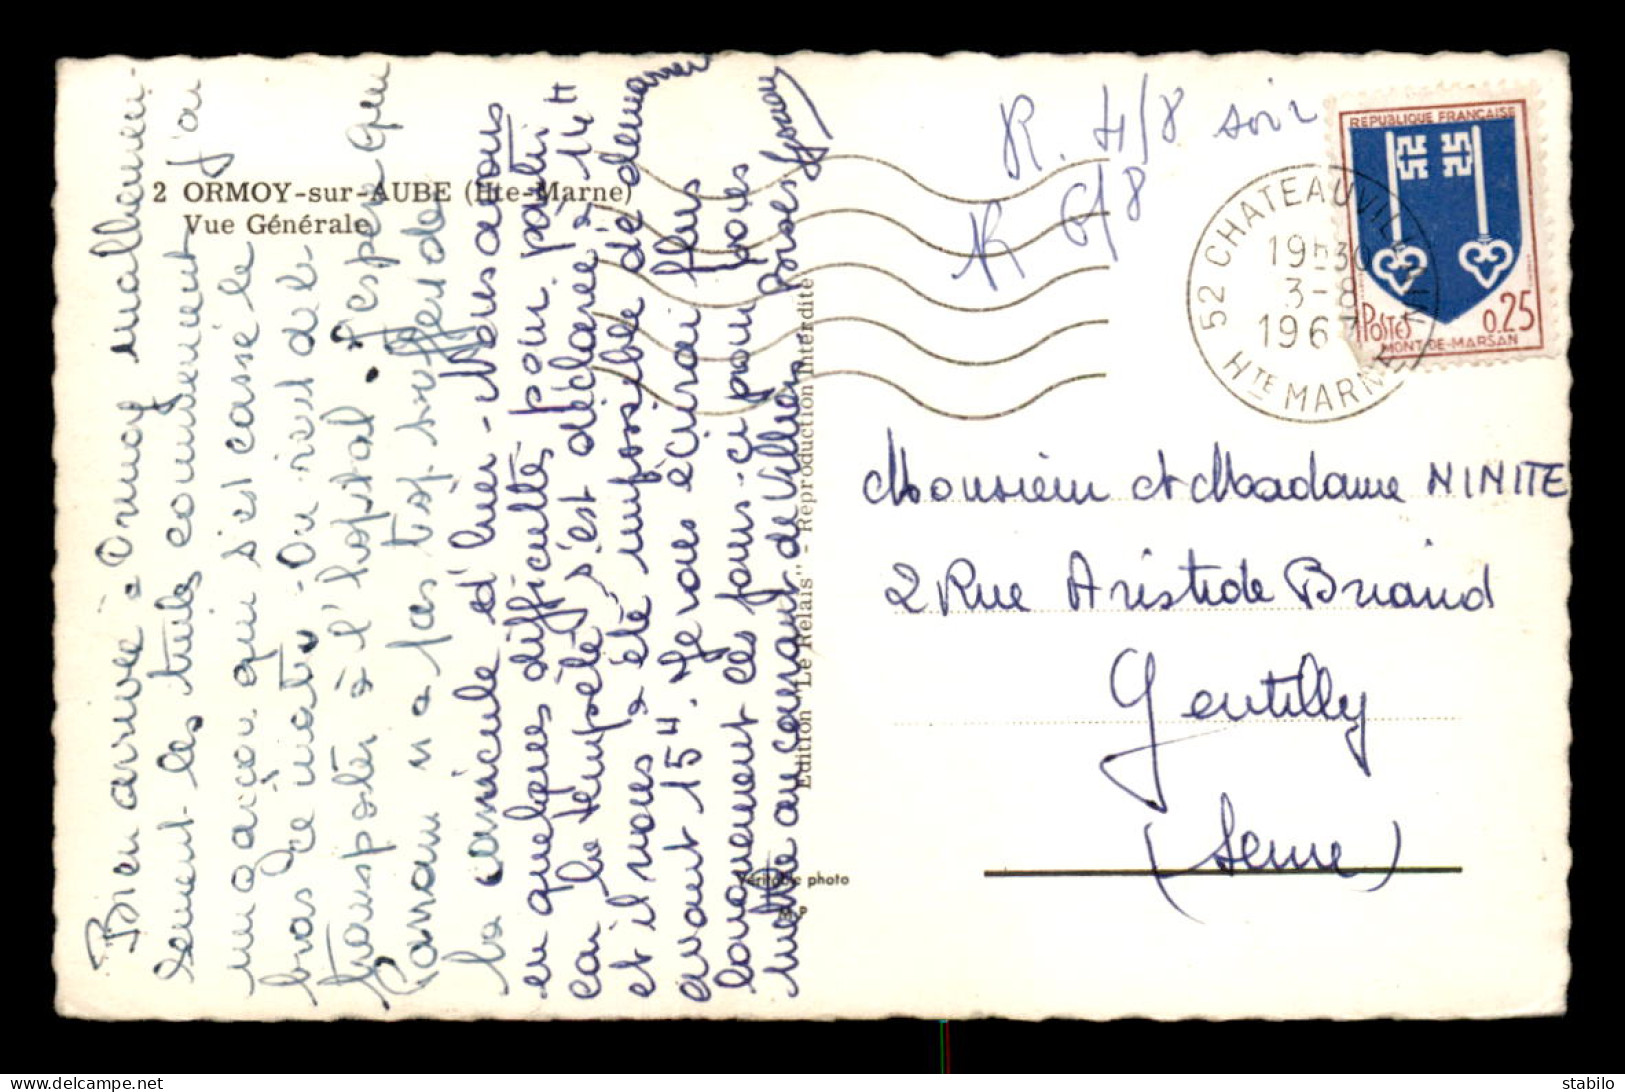 2 ORMOY-sur-AUBE (Hte-Marne)
Vue Générale
Bien arrivée à Ormoy malheureu-
sement les tuiles commencement j'ai
un garçon qui s'est cassé le
bras ce matin. On vient de le
transporter à l'hopital. J'espère que
Maman n'a pas trop souffert de
la canicule d'hier - Nous avons
eu quelques difficultés pour partir
car la tempête s'est déclarée à 14H
et il nous a été impossible de démarrer
avant 15H. Je vous écrirai plus
longuement ces jours-ci pour vous
mettre au courant de
Bises
Edition "Le Relais" - Reproduction Interdite
Véritable photo
R. 4/8 soir
R 6/8
52 CHATEAUVILLAIN
19H30
3-8
1967
HTE MARNE
REPUBLIQUE FRANÇAISE
POSTES
0.25
MONT-DE-MARSAN
Monsieur et Madame NINITE
2 Rue Aristide Briand
Gentilly
(Seine)
stabilo